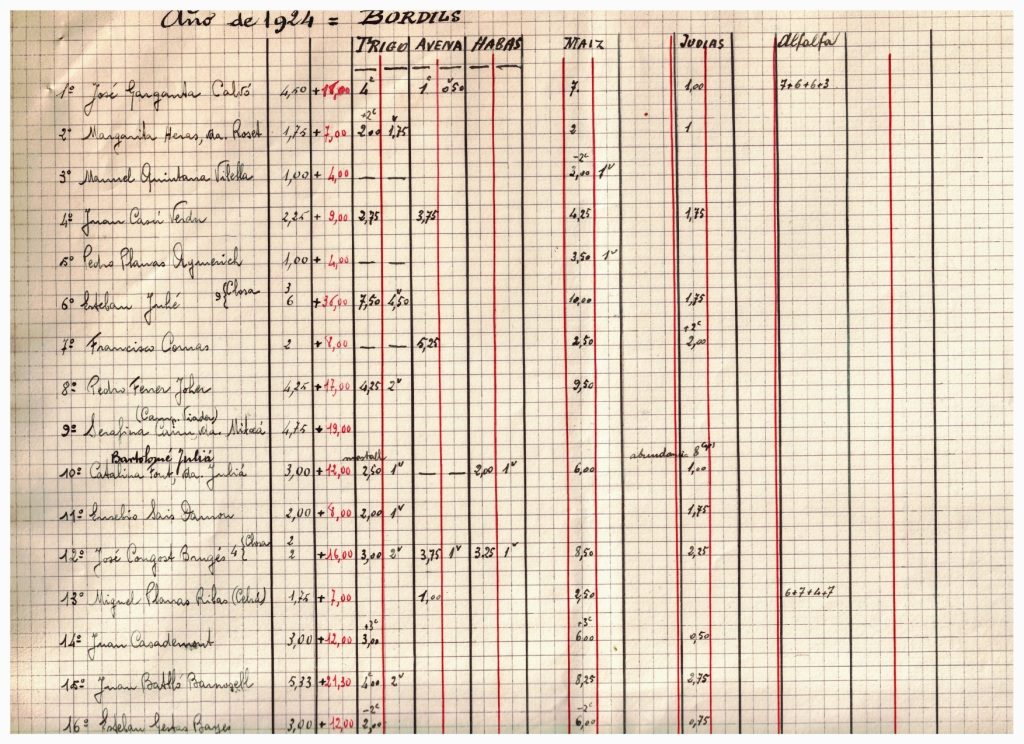 Año de 1924 = BORDILS
TRIGO AVENA HABAS MAIZ JUDIAS Alfalfa
1º José Garganta Calvó 4,50 + 18,00 4 c 1 c 0'50 v 7. 1,00 7+6+6+3
+2c
2º Margarita Heras, da. Roset 1,75 + 7,00 2,00 1,75 v 2 1
-2c
3º Manuel Quintana Vilella 1,00 + 4,00 — — 3,00 1v
4º Juan Casú Verdu 2,25 + 9,00 2,75 3,75 4,25 1,75
5º Pedro Planas Aymerich 1,00 + 4,00 — — 3,50 1v
Closa 3
6º Esteban Juhé 9{ 6 + 36,00 7,50 4,50 v 10,00 1,75
+2c
7º Francisco Comas 2 + 8,00 — — 5,25 2,50 2,00
8º Pedro Ferrer Joher 4,25 + 17,00 4,25 2v 9,50
9º Serafina da. 4,75 + 19,00
Bartolomé Juliá mestall abundancia 8
10º Catalina Font, da. Juliá 3,00 + 12,00 2,50 1v — — 2,00 1v 6,00 1,00
11º Eusebio Sais Damon 2,00 + 8,00 2,00 1v 1,75
Closa 2
12º José Congost Brugés 4{ 2 + 16,00 3,00 2v 3,75 1v 3,25 1v 8,50 2,25
13º Miguel Planas Ribas (Celrá) 1,75 + 7,00 1,00 2,50 6+7+4+7
+3c +3c
14º Juan Casademont 3,00 + 12,00 3,00 6,00 0,50
15º Juan Batlló 5,33 + 21,30 4,00 2v 8,25 2,75
-2c -2c
16º Esteban Geras Bayes 3,00 + 12,00 2,00 6,00 0,75